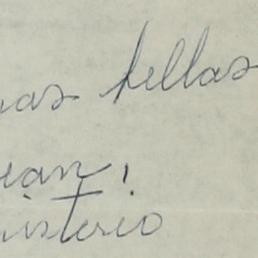 nas bellas
ean!
nisterio